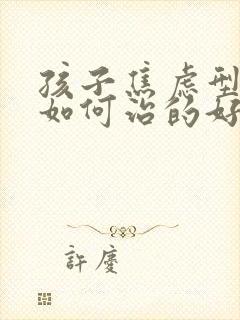 孩子焦虑型
如何治的好
許慶